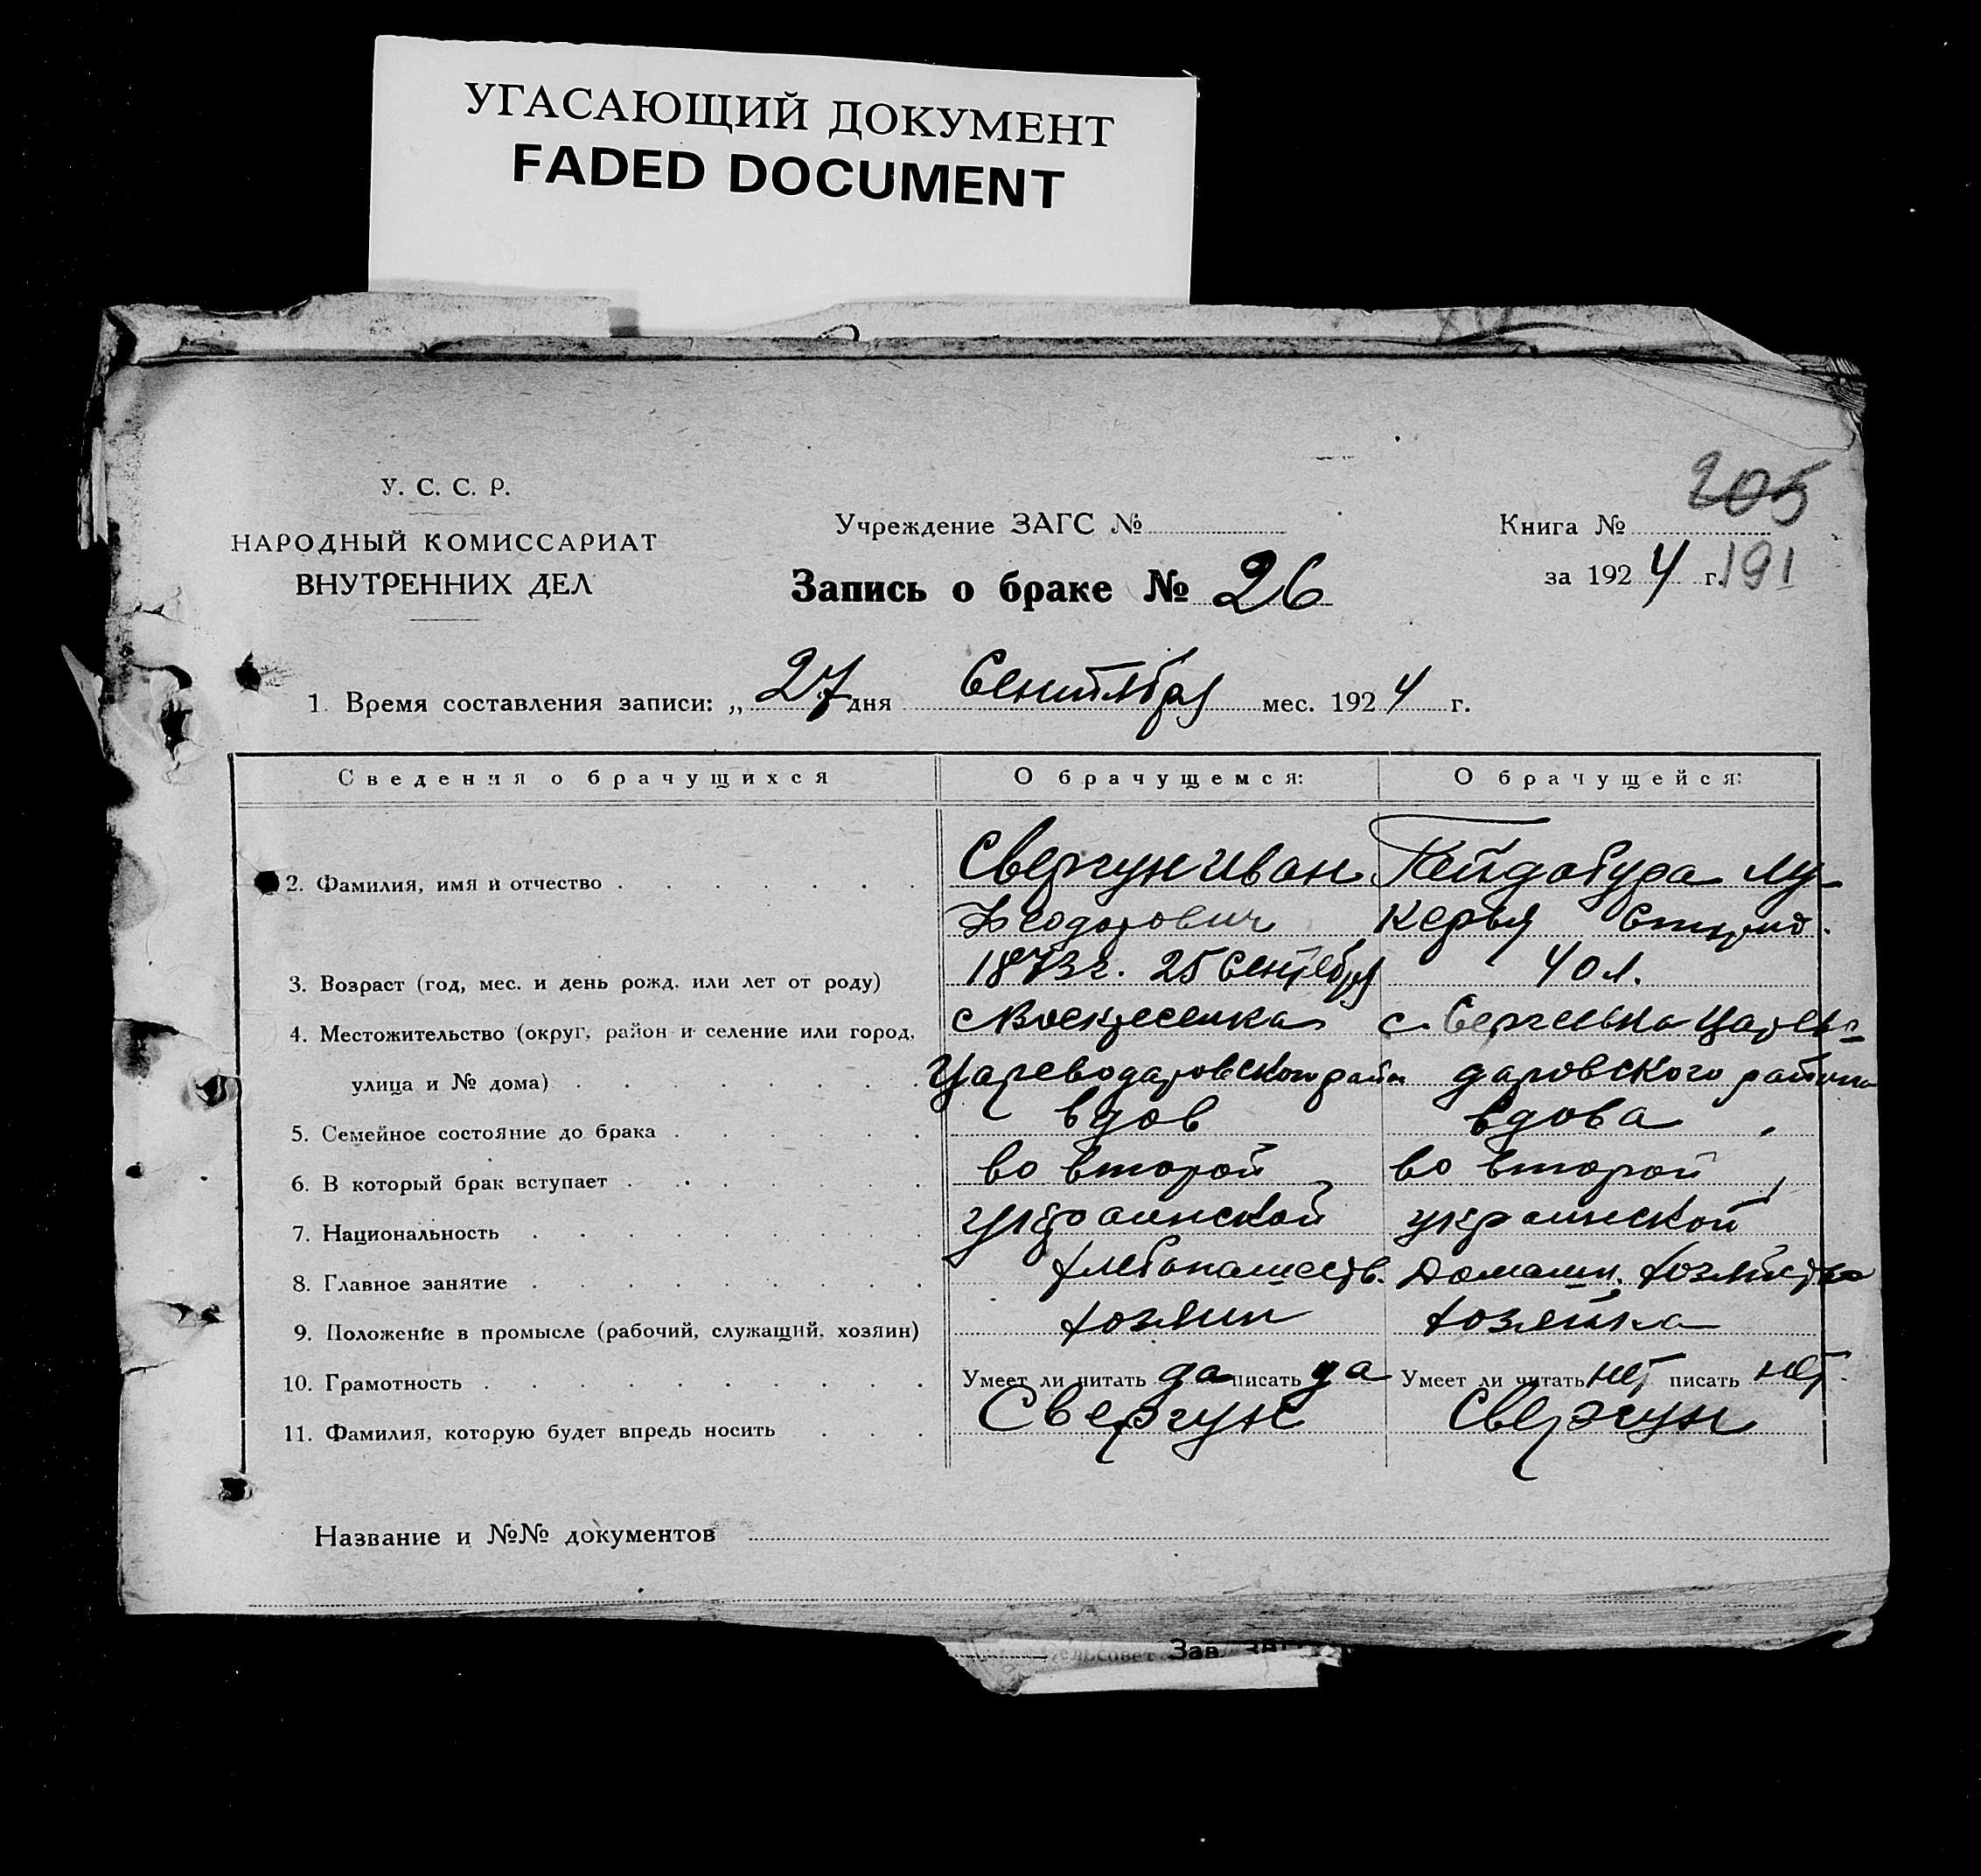 УГАСАЮЩИЙ ДОКУМЕНТ
FADED DOCUMENT
У. С. С. Р.
НАРОДНЫЙ КОМИССАРИАТ
ВНУТРЕННИХ ДЕЛ
Учреждение ЗАГС №
Запись о браке № 26
205
Книга №
за 1924 г. 191
1. Время составления записи: „ 27 дня Сентября мес. 1924 г.
Сведения о брачущихся О брачущемся: О брачущейся:
2. Фамилия, имя и отчество Свергун Иван Гайдабура Лу-
Феодорович керья
3. Возраст (год, мес. и день рожд. или лет от роду) 1873 г. 25 Сентября 40 л.
4. Местожительство (округ, район и селение или город, с Воскресенка с. Сергеевка Царево-
улица и № дома) Цареводаровского райн даровского района
5. Семейное состояние до брака вдов вдова
6. В который брак вступает во второй во второй
7. Национальность украинской украинской
8. Главное занятие хлебопашеств. Домашн. хозяйство
9. Положение в промысле (рабочий, служащий, хозяин) хозяин хозяйка
10. Грамотность Умеет ли читать да писать да Умеет ли читать нет писать нет.
11. Фамилия, которую будет впредь носить Свергун Свергун
Название и №№ документов
сельсовет Зав. ЗАГС